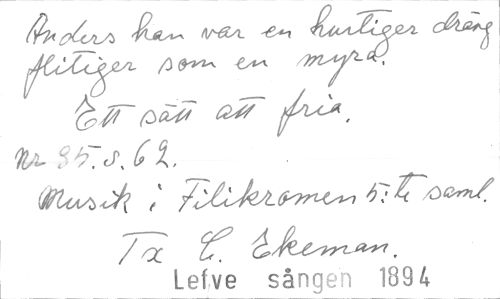 Anders han var en hurtiger dräng
flitiger som en myra.
Ett sätt att fria.
Nr 85. s. 62.
Musik i Filikromen 5:te saml.
Tx C. Ekeman.
Lefve sången 1894